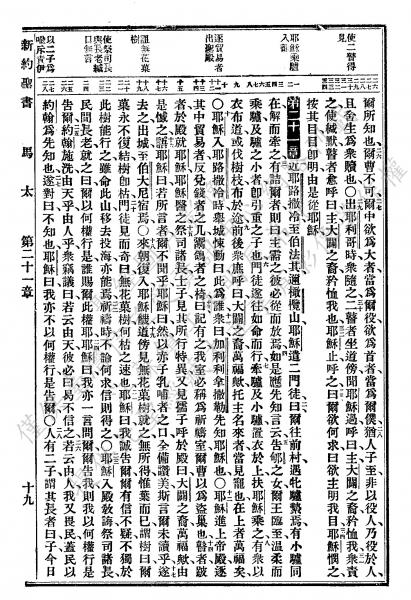 使二瞽得
見
耶穌乘驢
入都
逐貿易者
出聖殿
詛無花菓
樹
使祭司長
與長老緘
口無言
以二子爲
喻斥責伊
爾所知也爾曹不可爾中欲爲大者當爲爾役欲爲首者當爲爾僕猶人子至非以役人乃役於人
且捨生爲衆贖也○出耶利哥時衆隨之二瞽者坐道旁聞耶穌過呼曰主大闢之裔矜恤我衆責
之使緘默瞽者愈呼曰主大闢之裔矜恤我也耶穌止呼之曰爾欲何求曰欲主明我目耶穌憫之
按其目目卽明由是從耶穌
第二十一章 近耶路撒冷至伯法其邇橄欖山耶穌遣二門徒曰爾往前村遇牝驢縶焉有小驢同
在解而牽之有詰爾者則曰主需之彼必縱而放焉如是應先知言云告郇之女爾王臨至溫柔而
乘驢及驢之小者卽引重之子也門徒遂往如命而行牽驢及小驢置衣於上扶耶穌乘之有衆以
衣布道或伐樹枝布於途前後衆應呼曰大闢之裔萬福獻托主名來者當見寵也在上者萬福矣
○耶穌入耶路撒冷時舉城悚動曰此爲誰衆曰加利利拿撒勒先知耶穌也○耶穌進上帝殿逐
其中貿易者反兌錢者之几鬻鴿者之椅曰記有之我室必稱爲祈禱室爾曹以爲盜巢也瞽者跛
者於殿就耶穌耶穌醫之祭司諸長士子見其所行特異又見孺子呼於殿曰大闢之裔萬福獻由
是憾之謂耶穌曰若所言者爾不聞乎耶穌曰然以赤子乳哺者之口令備讚美斯言爾未讀乎遂
去之出城至伯大尼宿焉○來朝復入耶穌饑道旁見無花菓樹就之無所得惟葉而已謂樹曰爾
菓永不復結樹卽枯門徒見而奇曰無花菓樹何枯之速也耶穌曰我誠告爾有信不疑不獨於
此樹能行之雖命此山移去投海亦能焉祈禱時不論何求信則得之○耶穌入殿敎誨祭司諸長
民間長老就之曰爾以何權行是誰賜此權耶穌曰我亦一言問爾爾告我則我以何權行是
告爾約翰施洗由天乎由人乎衆竊議曰若云由天彼必曰曷不信之若云由人我又畏民蓋民以
約翰爲先知也遂對曰不知也耶穌曰我亦不以何權行是告爾○人有二子謂其長者曰子今日
新約聖書 馬太 第二十一章 十九